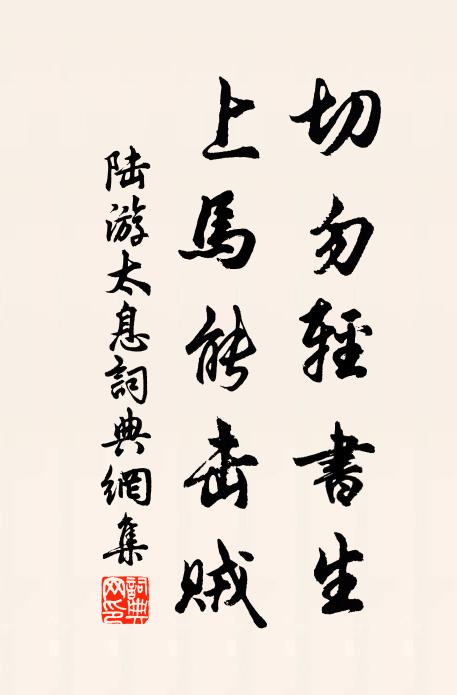 切勿輕書生
上馬能击賊
陆游太息詞典網集
詞典網印